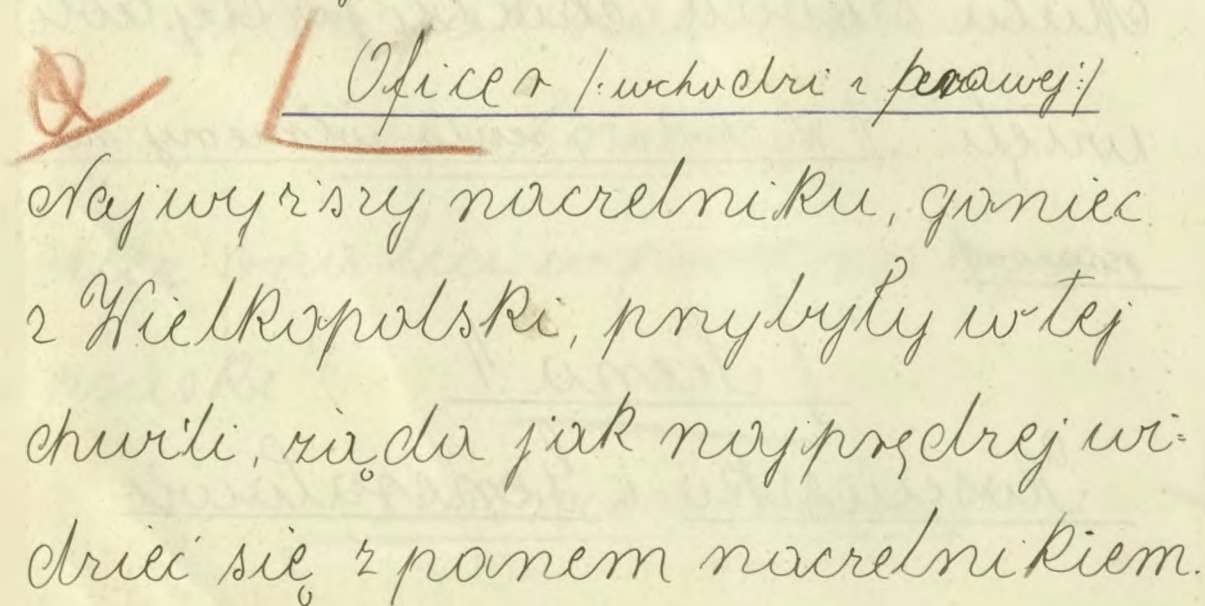 Oficer /:wchodzi z prawej:/
Najwyższy naczelniku, goniec
z Wielkopolski, przybyły w tej
chwili, żąda jak najprędzej wi=
dzieć się z panem naczelnikiem.